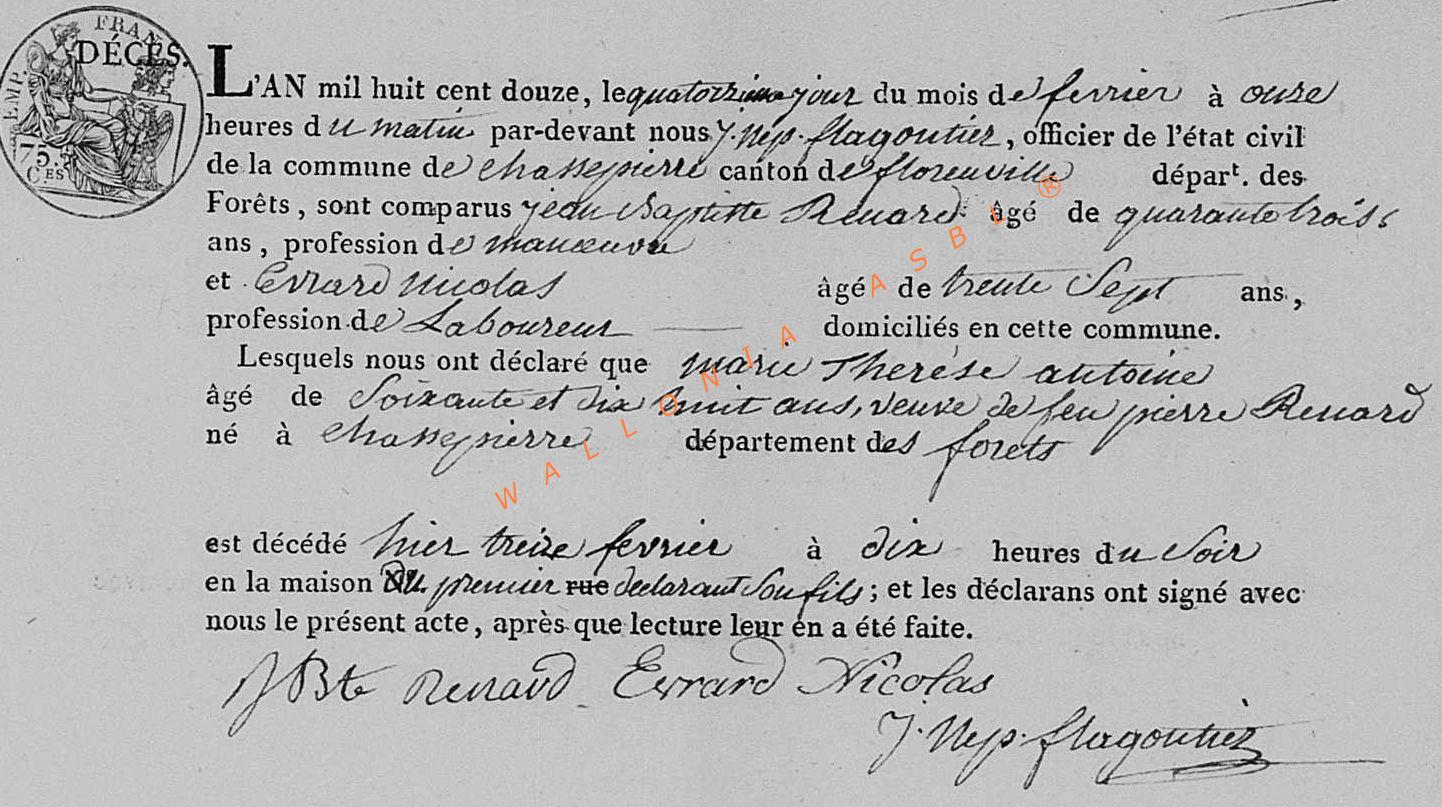 EMP. FRAN.
DÉCÈS.
75.
C.ES
L'AN mil huit cent douze, le quatorzieme jour du mois de fevrier à onze
heures du matin par-devant nous J. Nep. flagoutier, officier de l'état civil
de la commune de chassepierre canton de florenville départ. des
Forêts, sont comparus jean Baptiste Renard âgé de quarante trois
ans, profession de manœuvre
et Evrard Nicolas âgé de trente Sept ans,
profession de Laboureur domiciliés en cette commune.
Lesquels nous ont déclaré que marie Therèse antoine
âgé de Soixante et dix huit ans, veuve de feu pierre Renard
né à chassepierre département des forets
est décédé hier treize fevrier à dix heures du Soir
en la maison du premier rue declarant Son fils; et les déclarans ont signé avec
nous le présent acte, après que lecture leur en a été faite.
J Bte Renard Evrard Nicolas
J. Nep. flagoutier
WALLONIA ASBL ®